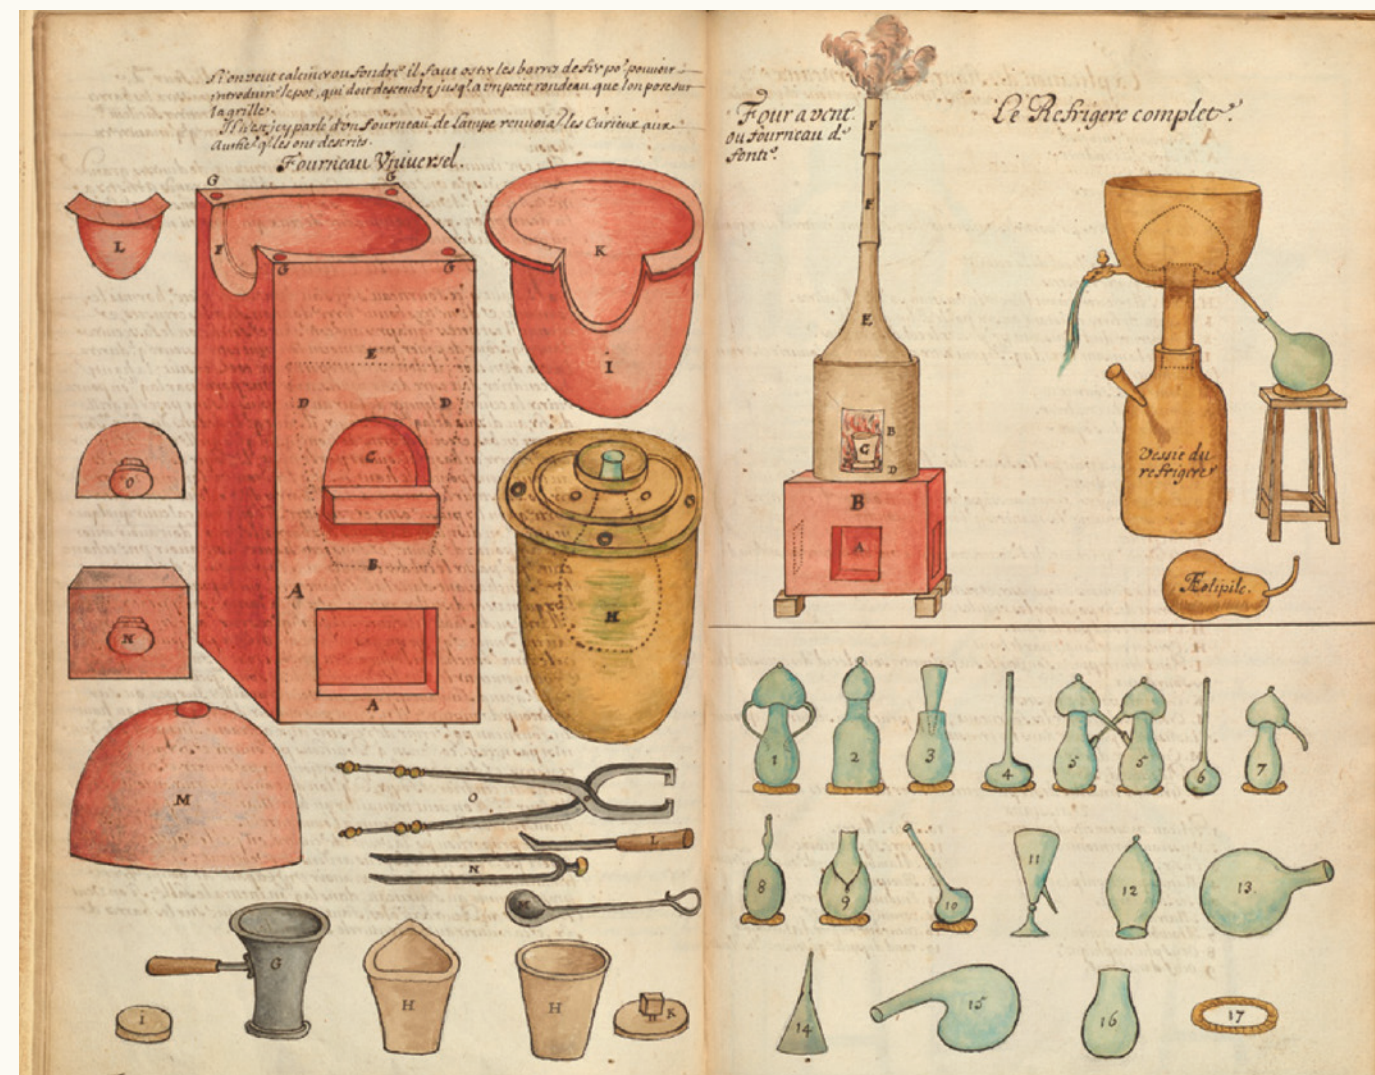 Si on veut calciner ou fondre il faut oster les barres de fer po.r pouvoir
introduire le pot, qui doit descendre jusq'a un petit rondeau que l'on pose sur
la grille.
Il n'est icy parlé d'un fourneau de lampe renvoia.t les Curieux aux
Auth.rs q.i les ont descrits.
Fourneau Vniversel.
G
G
F
G
G
E
D
D
C
B
A
A
L
K
I
O
N
H
M
O
L
N
M
G
I
H
H
K
Four a vent
ou fourneau de
fonte.
Le Refrigere complet.
F
F
E
B
C
D
B
A
Vessie du
refrigere
Æolipile.
1
2
3
4
5
5
6
7
8
9
10
11
12
13.
14
15
16
17